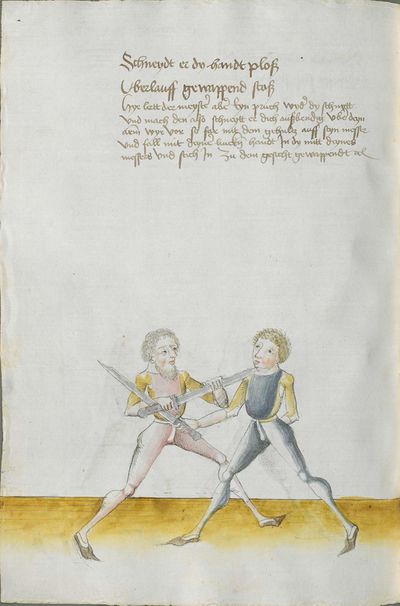 Schneydt er dy handt ploß
Uberlauff gewappend stoß
Hye lett der meyster aber eyn pruch wyder dy schnytt
Und mach den also schneytt er dich auswendig uber deyn
arm wyr vor so far mit dem gehultz auff seyn messer
und fall mit deyner lincken handt In dy mitt deynes
messers und stich In zu dem gesicht gewappendt